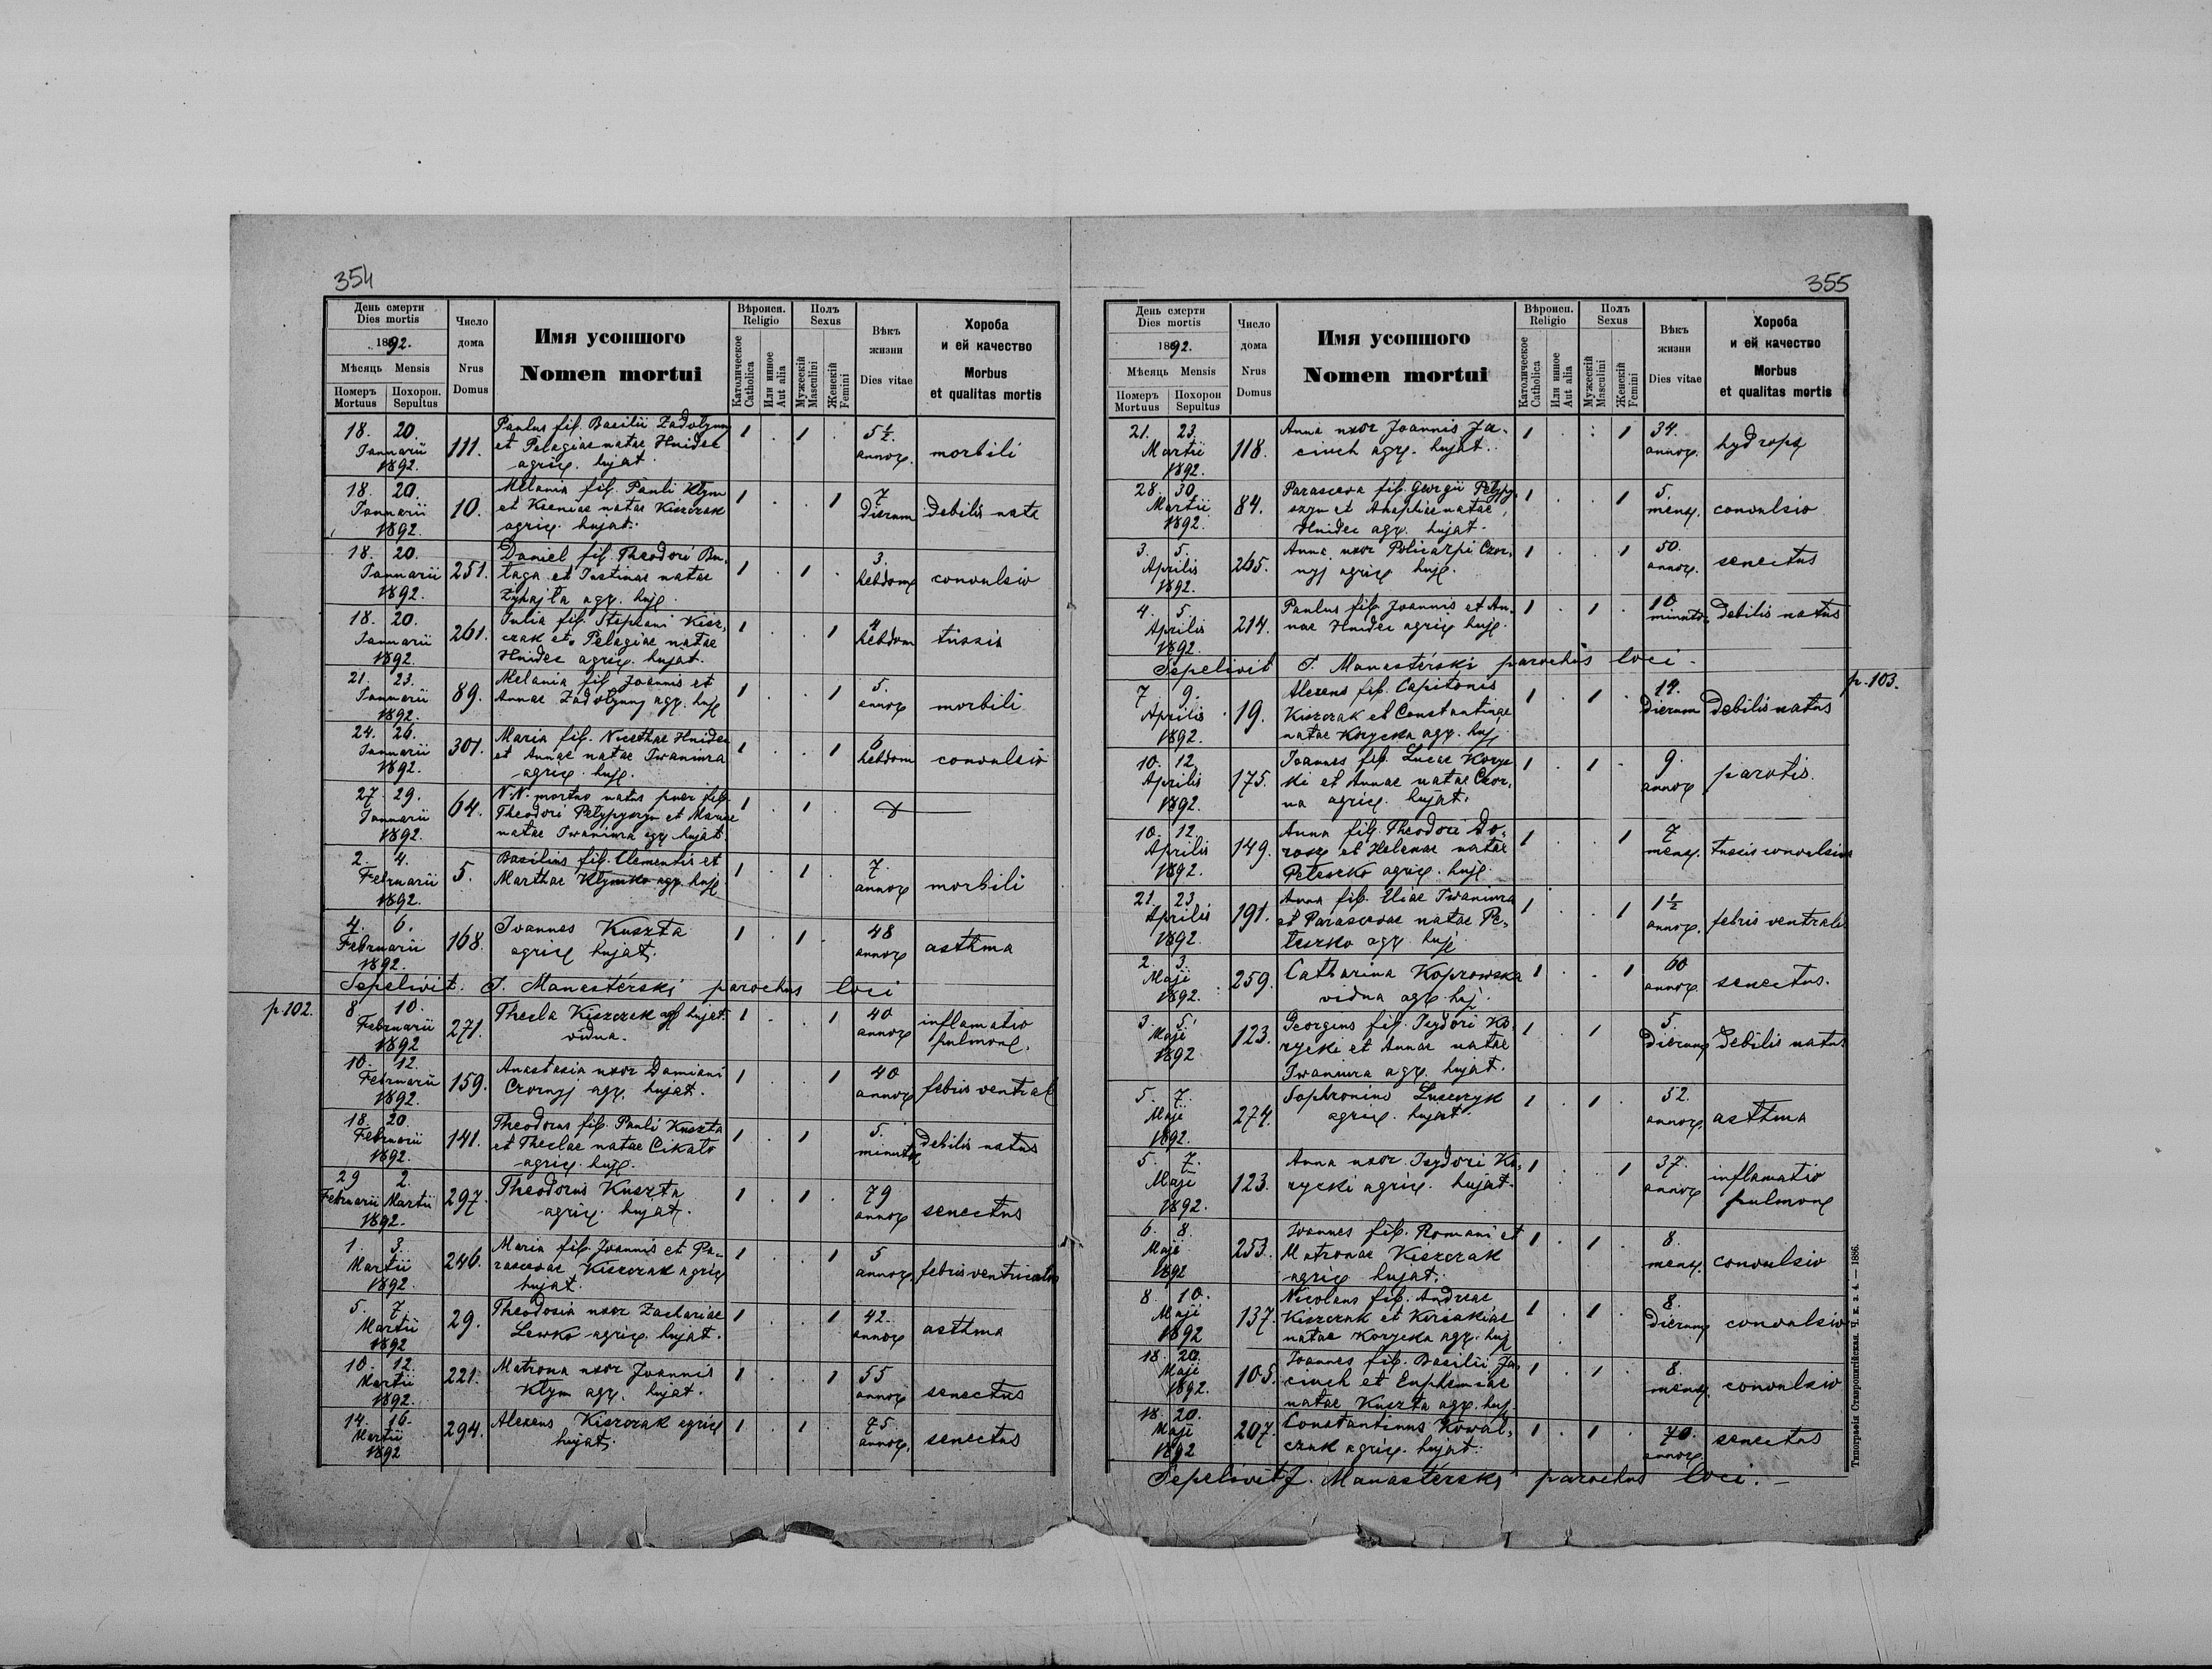 354
День смерти
Dies mortis
1892.
Мѣсяць Mensis
Номеръ Mortuus
Похорон. Sepultus
Число дома
Nrus Domus
Имя усопшого
Nomen mortui
Вѣроисп.
Religio
Католическое Catholica
Или инное Aut alia
Полъ
Sexus
Мужескій Masculini
Женскій Femini
Вѣкъ жизни
Dies vitae
Хороба
и ей качество
Morbus
et qualitas mortis
18. 20. Paulus fil. Basilii Zadolynnyj 1 . 1 . 5½
Januarii 111. et Pelagiae natae Hnidec annor. morbili
1892. agric. hujat.
18. 20. Melania fil. Pauli Klym 1 . . 1 7
Januarii 10. et Kseniae natae Kiszczak dierum debilis nata
1892. agric. hujat.
18. 20. Daniel fil. Theodori Bu- 3.
Januarii 251. taga et Justinae natae 1 . 1 . hebdom convulsio
1892. Zyhajła agr. huj.
18. 20. Julia fil. Stephani Kisz- 4
Januarii 261. czak et Pelagiae natae 1 . . 1 hebdom tussis
1892. Hnidec agric. hujat.
21. 23. Melania fil. Joannis et 5.
Januarii 89. Annae Zadolynnyj agr. huj 1 . . 1 annor morbili
1892.
24. 26. Maria fil. Nicethae Hnidec 6
Januarii 301. et Annae natae Iwaniura 1 . . 1 hebdom convulsio
1892. agric. huj.
27. 29. N.N. mortuo natus puer fil.
Januarii 64. Theodori Petypyszyn et Mariae 1 . 1
1892. natae Iwaniura agr. hujat.
2. 4. Basilius fil. Clementis et 7.
Februarii 5. Marthae Klymko agr. huj 1 . 1 . annor morbili
1892.
4. 6. Ioannes Kuszta 48
Februarii 168. agric hujat. 1 . 1 . annor asthma
1892.
Sepelivit. J. Manasterski parochus loci
p. 102.
8 10. Thecla Kiszczak agr hujat. 1 . . 1 40 inflamatio
Februarii 271. vidua. annor pulmon.
1892
10. 12. Anastasia uxor Damiani 40
Februarii 159. Czornyj agr. hujat. 1 . . 1 annor febris ventral
1892.
18. 20. Theodorus fil. Pauli Kuszta 5.
Februarii 141. et Theclae natae Cikało 1 . 1 minut debilis natus
1892. agric. huj.
29 2. Theodorus Kuszta 79
Februarii Martii 297. agric. hujat. 1 . 1 . annor senectus
1892.
1. 3. Maria fil. Joannis et Pa- 5
Martii 246. rascevae Kiszczak agric 1 . . 1 annor. febris ventricalis
1892. hujat.
5. 7. Theodosia uxor Zachariae 42.
Martii 29. Lewko agric. hujat. 1 . . 1 annor asthma
1892
10. 12. Matrona uxor Joannis 55
Martii 221. Klym agr. hujat. 1 . . 1 annor senectus
1892.
14. 16. Alexius Kiszczak agric 75
Martii 294. hujat. 1 . 1 annor. senectus
1892
355
День смерти
Dies mortis
1892.
Мѣсяць Mensis
Номеръ Mortuus
Похорон Sepultus
Число дома
Nrus Domus
Имя усопшого
Nomen mortui
Вѣроисп.
Religio
Католическое Catholica
Или инное Aut alia
Полъ
Sexus
Мужескій Masculini
Женскій Femini
Вѣкъ жизни
Dies vitae
Хороба
и ей качество
Morbus
et qualitas mortis
21. 23. Anna uxor Joannis Ja- 34.
Martii 118. ciuch agr. hujat. 1 . . 1 annor. hydrops
1892.
28. 30. Parasceva fil. Georgii Petypy- 5.
Martii 84. szyn et Anaphiae natae 1 . . 1 mens. convulsio
1892. Hnidec agr. hujat.
3. 5. Anna uxor Policarpi Czor- 50.
Aprilis 265. nyj agric huj. 1 . . 1 annor. senectus
1892.
4. 5. Paulus fil. Joannis et An- 10
Aprilis 214. nae Hnidec agric huj. 1 . 1 . minut. debilis natus
1892.
Sepelivit J. Manasterski parochus loci
p. 103.
7 9. Alexius fil. Capitonis 12.
Aprilis 19. Kiszczak et Constantinae 1 . 1 . dierum debilis natus
1892. natae Korycka agr. huj.
10. 12. Ioannes fil. Lucae Koryc- 9.
Aprilis 175. ki et Annae natae Czor- 1 . 1 . annor parotis.
1892. na agric. hujat.
10. 12. Anna fil. Theodori Do- 7
Aprilis 149. rosz et Helenae natae 1 . . 1 mens. tussis convulsiva
1892. Peteszko agric. huj.
21. 23. Anna fil. Eliae Iwaniura 1½
Aprilis 191. et Parascevae natae Pe- 1 . . 1 annor. febris ventralis
1892. teszko agr. huj.
2. 3. Catharina Koprowska 60
Maji 259. vidua agr. huj. 1 . . 1 annor. senectus.
1892.
3. 5. Georgius fil. Isydori Ko- 5.
Maji 123. rycki et Annae natae 1 . 1 dierum debilis natus
1892 Iwaniura agr. hujat.
5. 7. Sophronius Luszczyk 52.
Maji 274. agric. hujat. 1 . 1 . annor. asthma
1892.
5. 7. Anna uxor Isydori Ko- 37. inflamatio
Maji 123. rycki agric. hujat. 1 . . 1 annor pulmon
1892.
6. 8. Ioannes fil. Romani et 8.
Maji 253. Matronae Kiszczak 1 . 1 . mens. convulsio
1892 agric hujat.
8. 10. Nicolaus fil. Andreae 8.
Maji 137. Kiszczak et Kiriakiae 1 . 1 . dierum convulsio
1892 natae Korycka agr. huj
18. 20. Ioannes fil. Basilii Ja- 8.
Maji 105. ciuch et Euphemiae 1 . 1 . mens convulsio
1892. natae Kuszta agr. huj.
18. 20. Constantinus Kowal- 70.
Maji 207. czuk agric. hujat. 1 . 1 . annor senectus
1892
Sepelivit J. Manasterski parochus loci.
Типографія Ставропигійская. Ч. к. з. 4. — 1886.